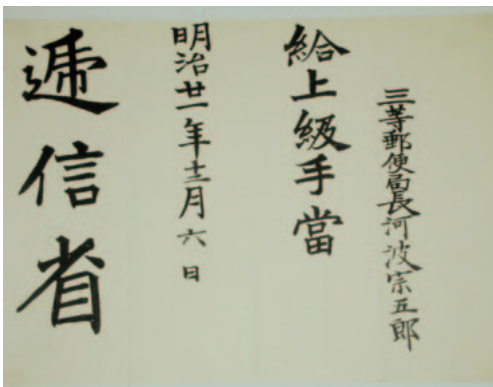 三等郵便局長河波宗五郎
給上級手當
明治廿一年十二月六日
遞信省